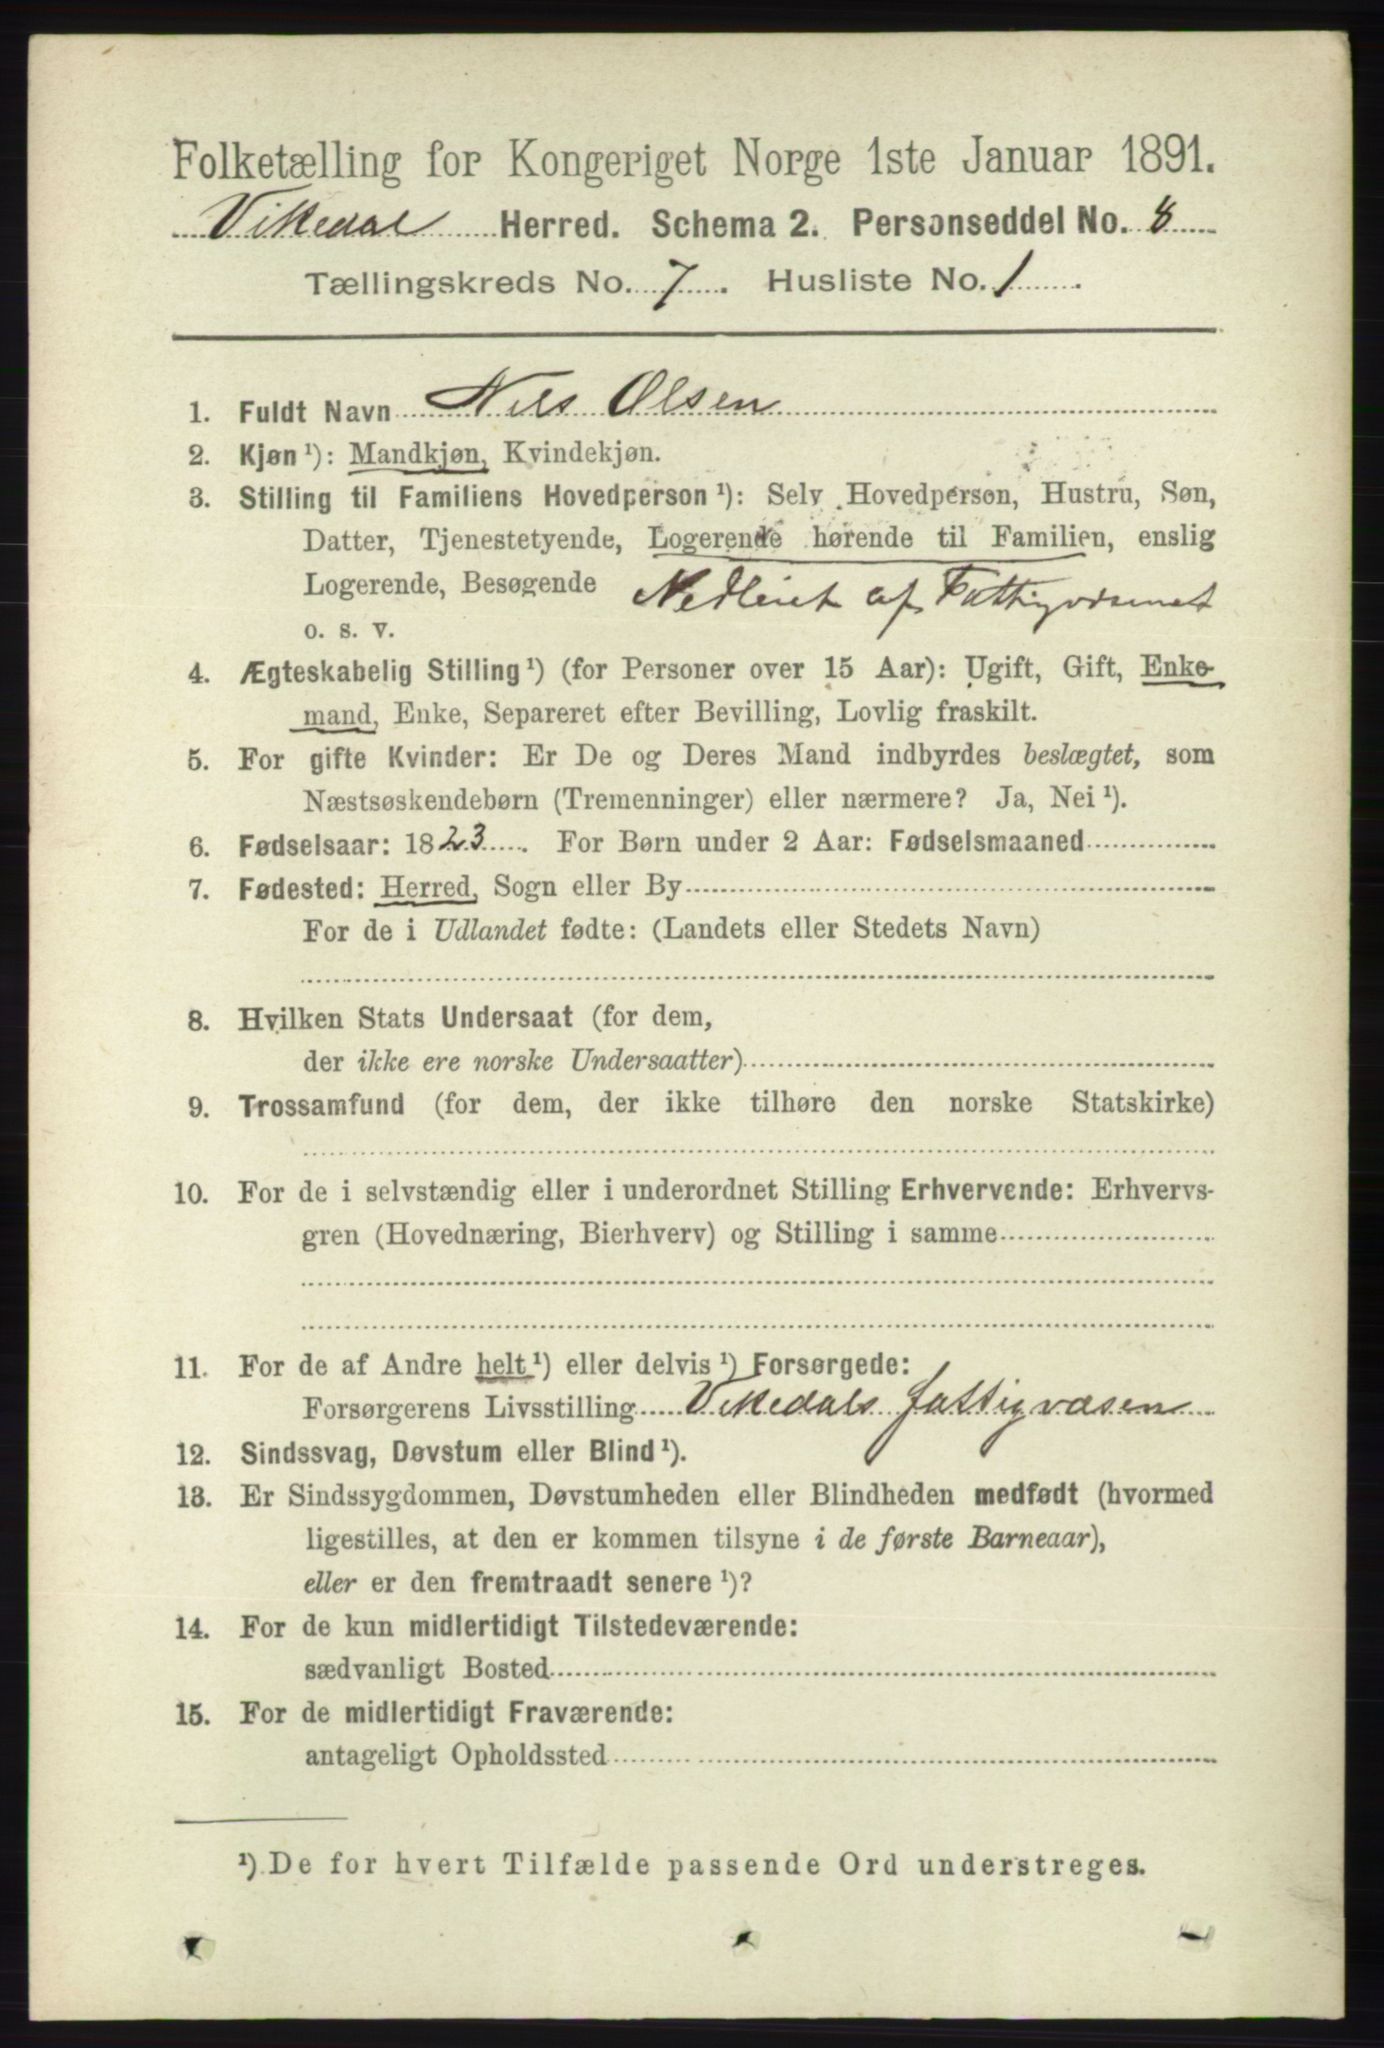 Folketælling for Kongeriget Norge 1ste Januar 1891.
Vikedal Herred. Schema 2. Personseddel No. 8
Tællingskreds No. 7. Husliste No. 1.
1. Fuldt Navn Nils Olsen
2. Kjøn ¹): Mandkjøn, Kvindekjøn.
3. Stilling til Familiens Hovedperson ¹): Selv Hovedperson, Hustru, Søn,
Datter, Tjenestetyende, Logerende hørende til Familien, enslig
Logerende, Besøgende af Fattigvæsenet
o. s. v.
4. Ægteskabelig Stilling ¹) (for Personer over 15 Aar): Ugift, Gift, Enke-
mand, Enke, Separeret efter Bevilling, Lovlig fraskilt.
5. For gifte Kvinder: Er De og Deres Mand indbyrdes beslægtet, som
Næstsøskendebørn (Tremenninger) eller nærmere? Ja, Nei ¹).
6. Fødselsaar: 1823. For Børn under 2 Aar: Fødselsmaaned
7. Fødested: Herred, Sogn eller By
For de i Udlandet fødte: (Landets eller Stedets Navn)
8. Hvilken Stats Undersaat (for dem,
der ikke ere norske Undersaatter)
9. Trossamfund (for dem, der ikke tilhøre den norske Statskirke)
10. For de i selvstændig eller i underordnet Stilling Erhvervende: Erhvervs-
gren (Hovednæring, Bierhverv) og Stilling i samme
11. For de af Andre helt ¹) eller delvis ¹) Forsørgede:
Forsørgerens Livsstilling Vikedals fattigvæsen
12. Sindssvag, Døvstum eller Blind ¹).
13. Er Sindssygdommen, Døvstumheden eller Blindheden medfødt (hvormed
ligestilles, at den er kommen tilsyne i de første Barneaar),
eller er den fremtraadt senere ¹)?
14. For de kun midlertidigt Tilstedeværende:
sædvanligt Bosted
15. For de midlertidigt Fraværende:
antageligt Opholdssted
¹) De for hvert Tilfælde passende Ord understreges.